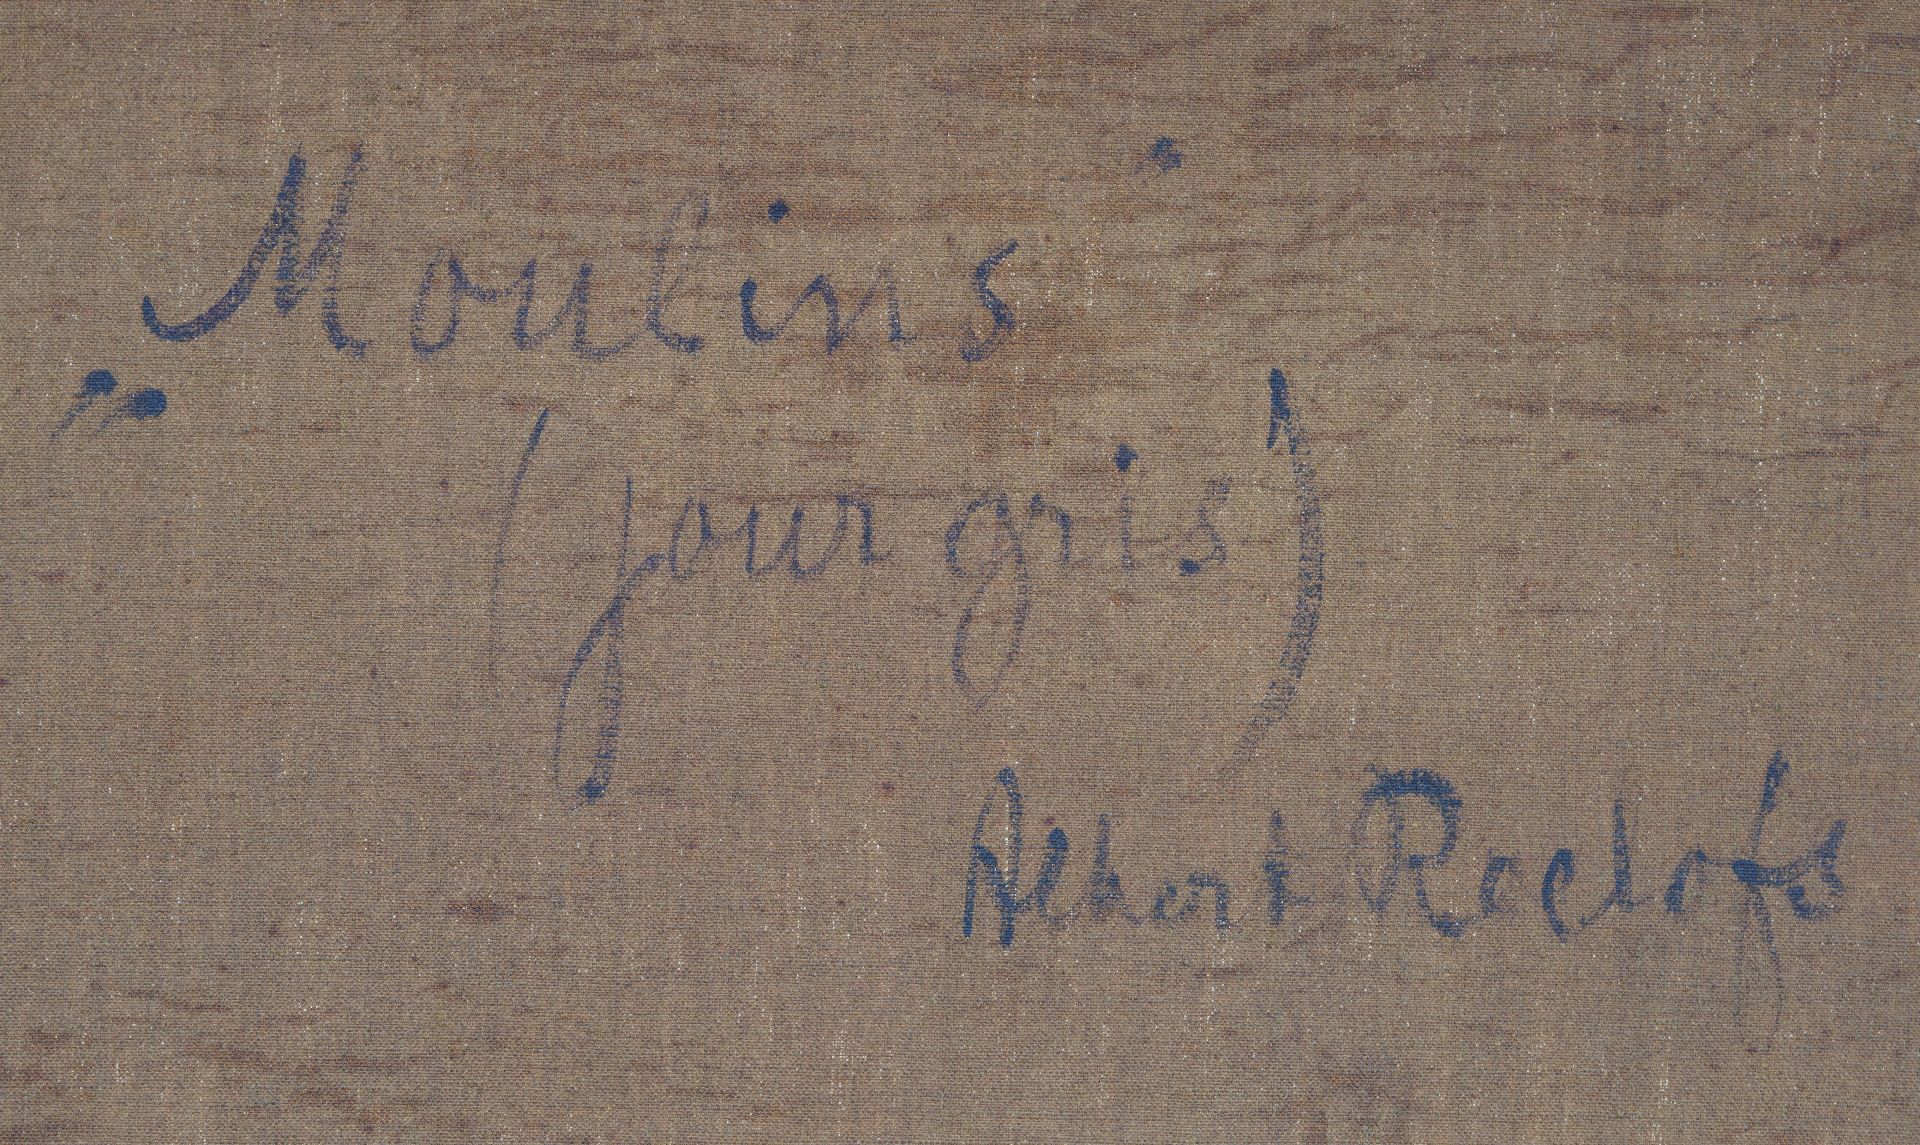 „Moulins"
(jour gris)
Albert Roelofs